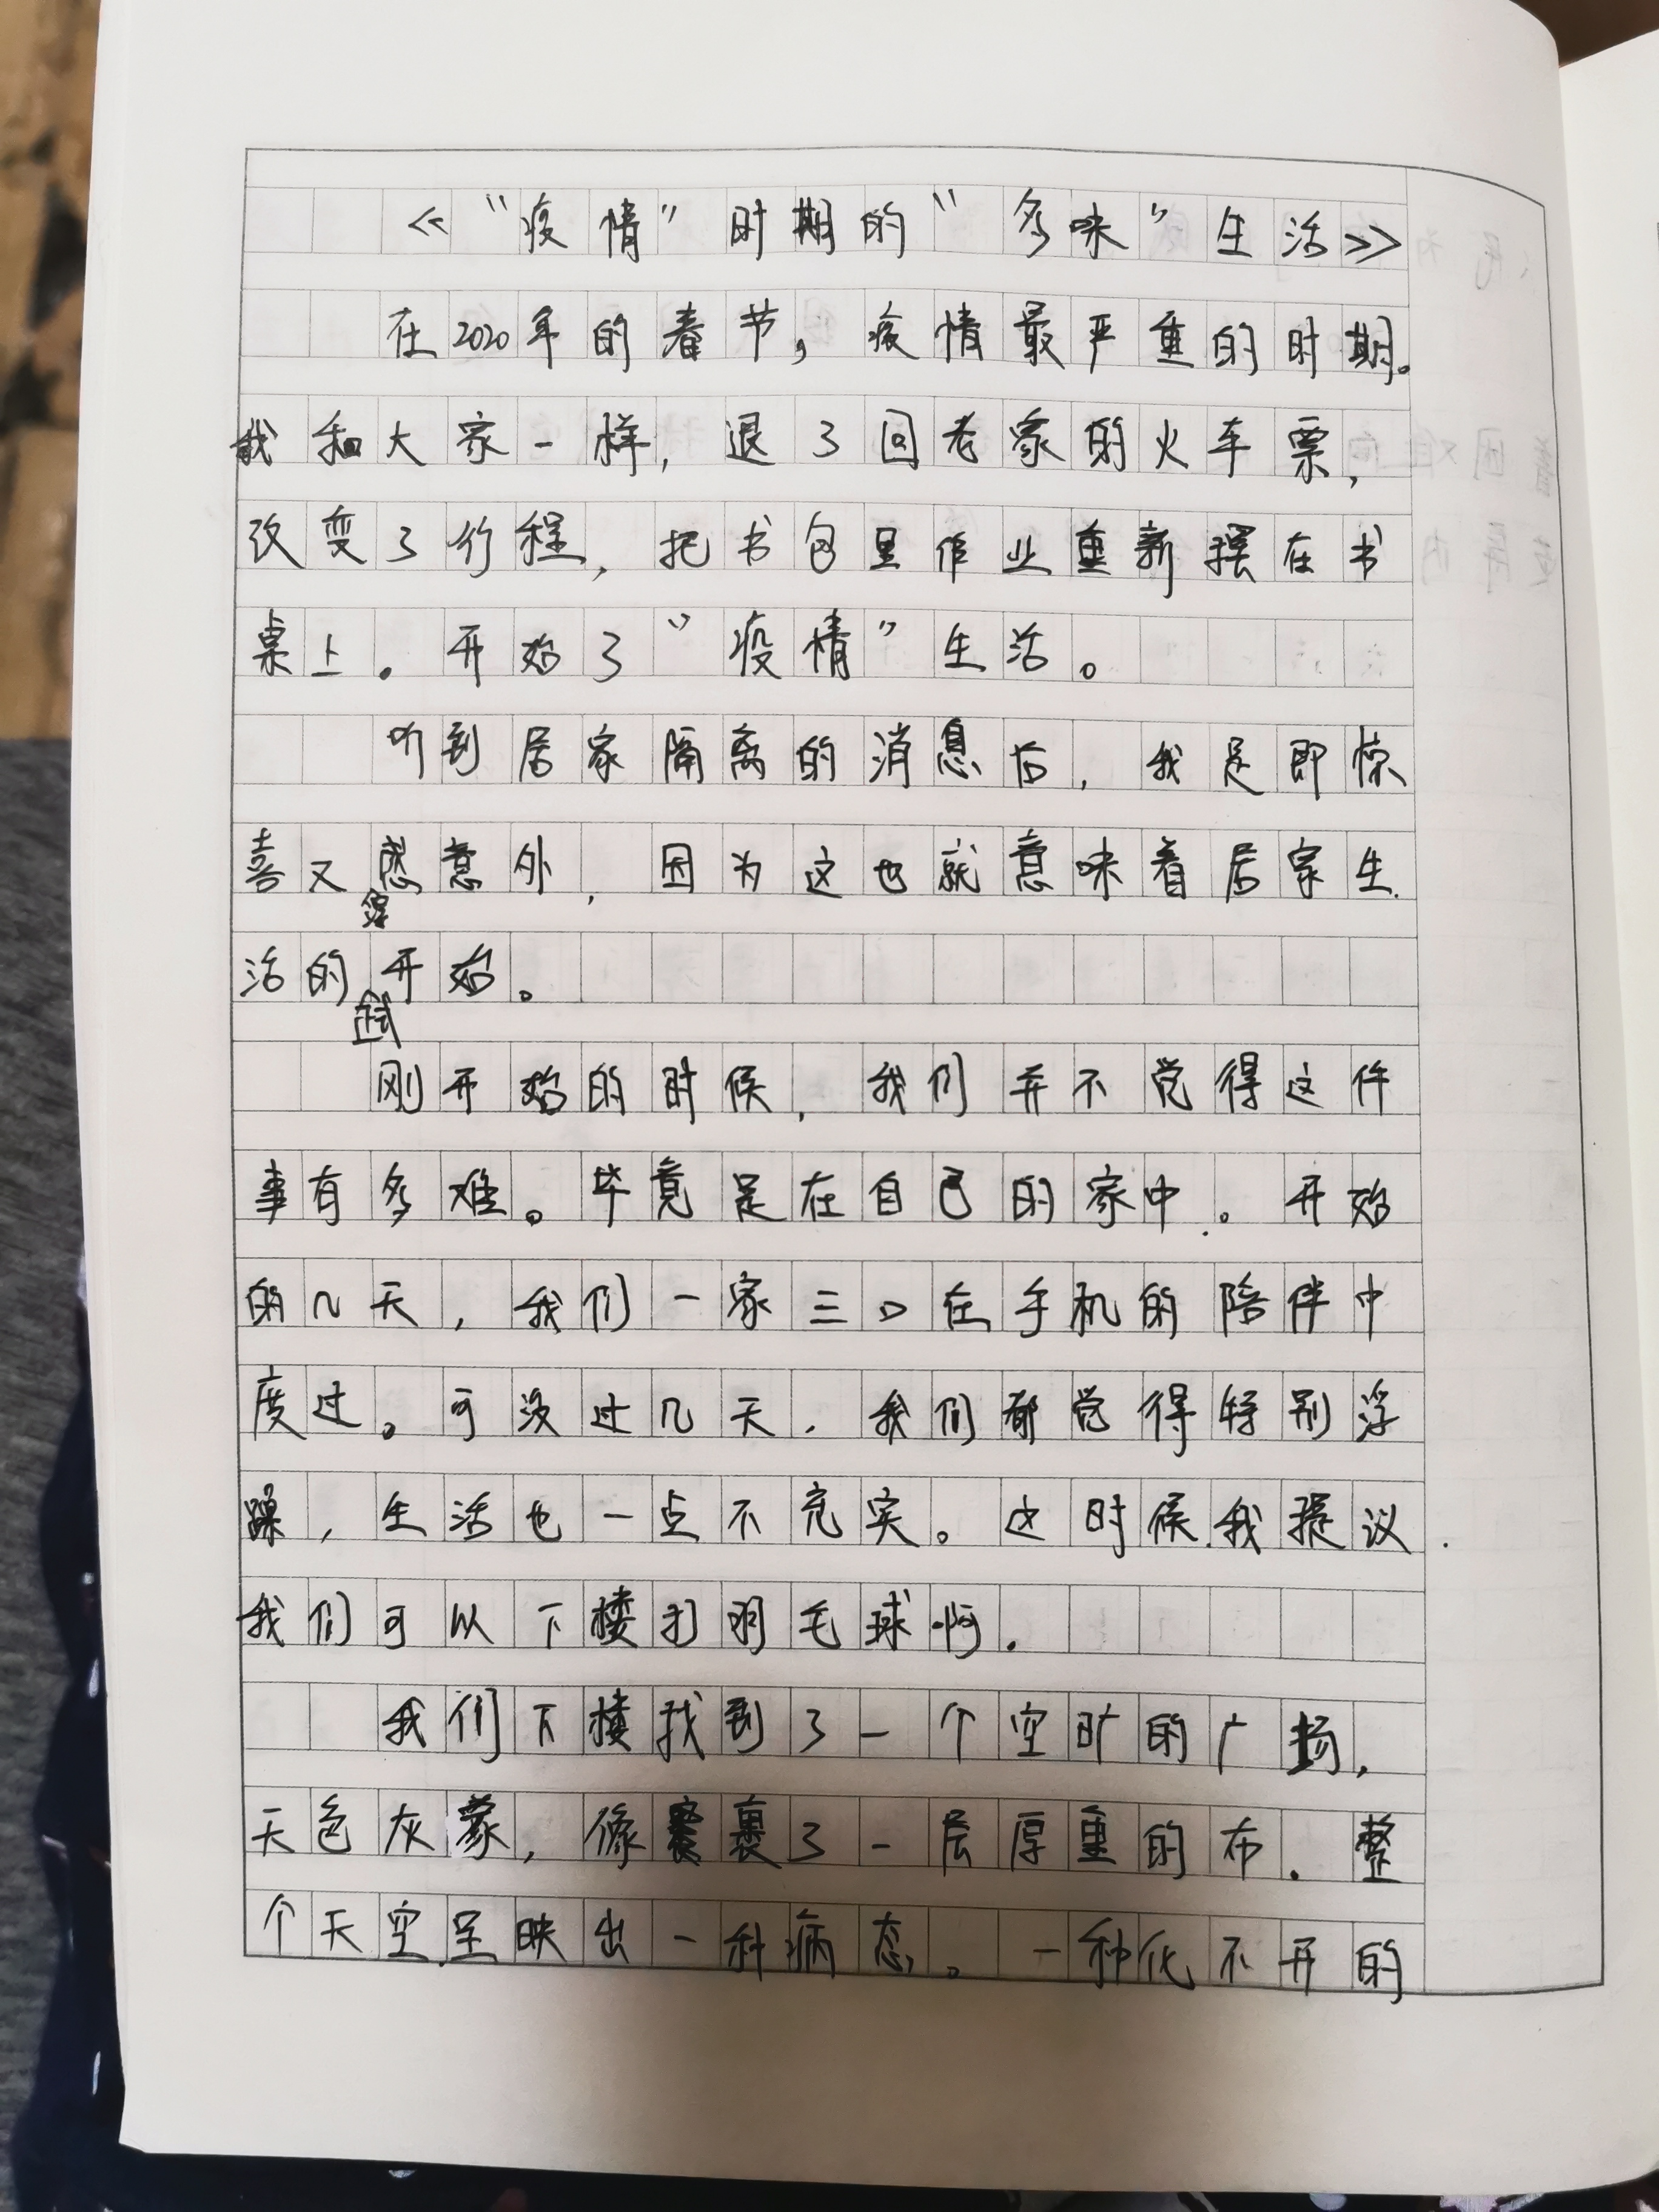 《“疫情”时期的“多味”生活》
在2020年的春节，疫情最严重的时期。
我和大家一样，退了回老家的火车票，
改变了行程，把书包里作业重新摆在书
桌上。开始了”疫情”生活。
听到居家隔离的消息后，我是即惊
喜又感意外，因为这也就意味着居家生
活的开始。
刚开始的时候，我们并不觉得这件
事有多难。毕竟是在自己的家中。开始
的几天，我们一家三口在手机的陪伴中
度过。可没过几天，我们都觉得特别浮
躁，生活也一点不充实。这时候，我提议
我们可以下楼打羽毛球啊．
我们下楼找到了一个空旷的广场，
天色灰蒙，像裹了一层厚重的布．整
个天空呈映出一种病态。一种化不开的